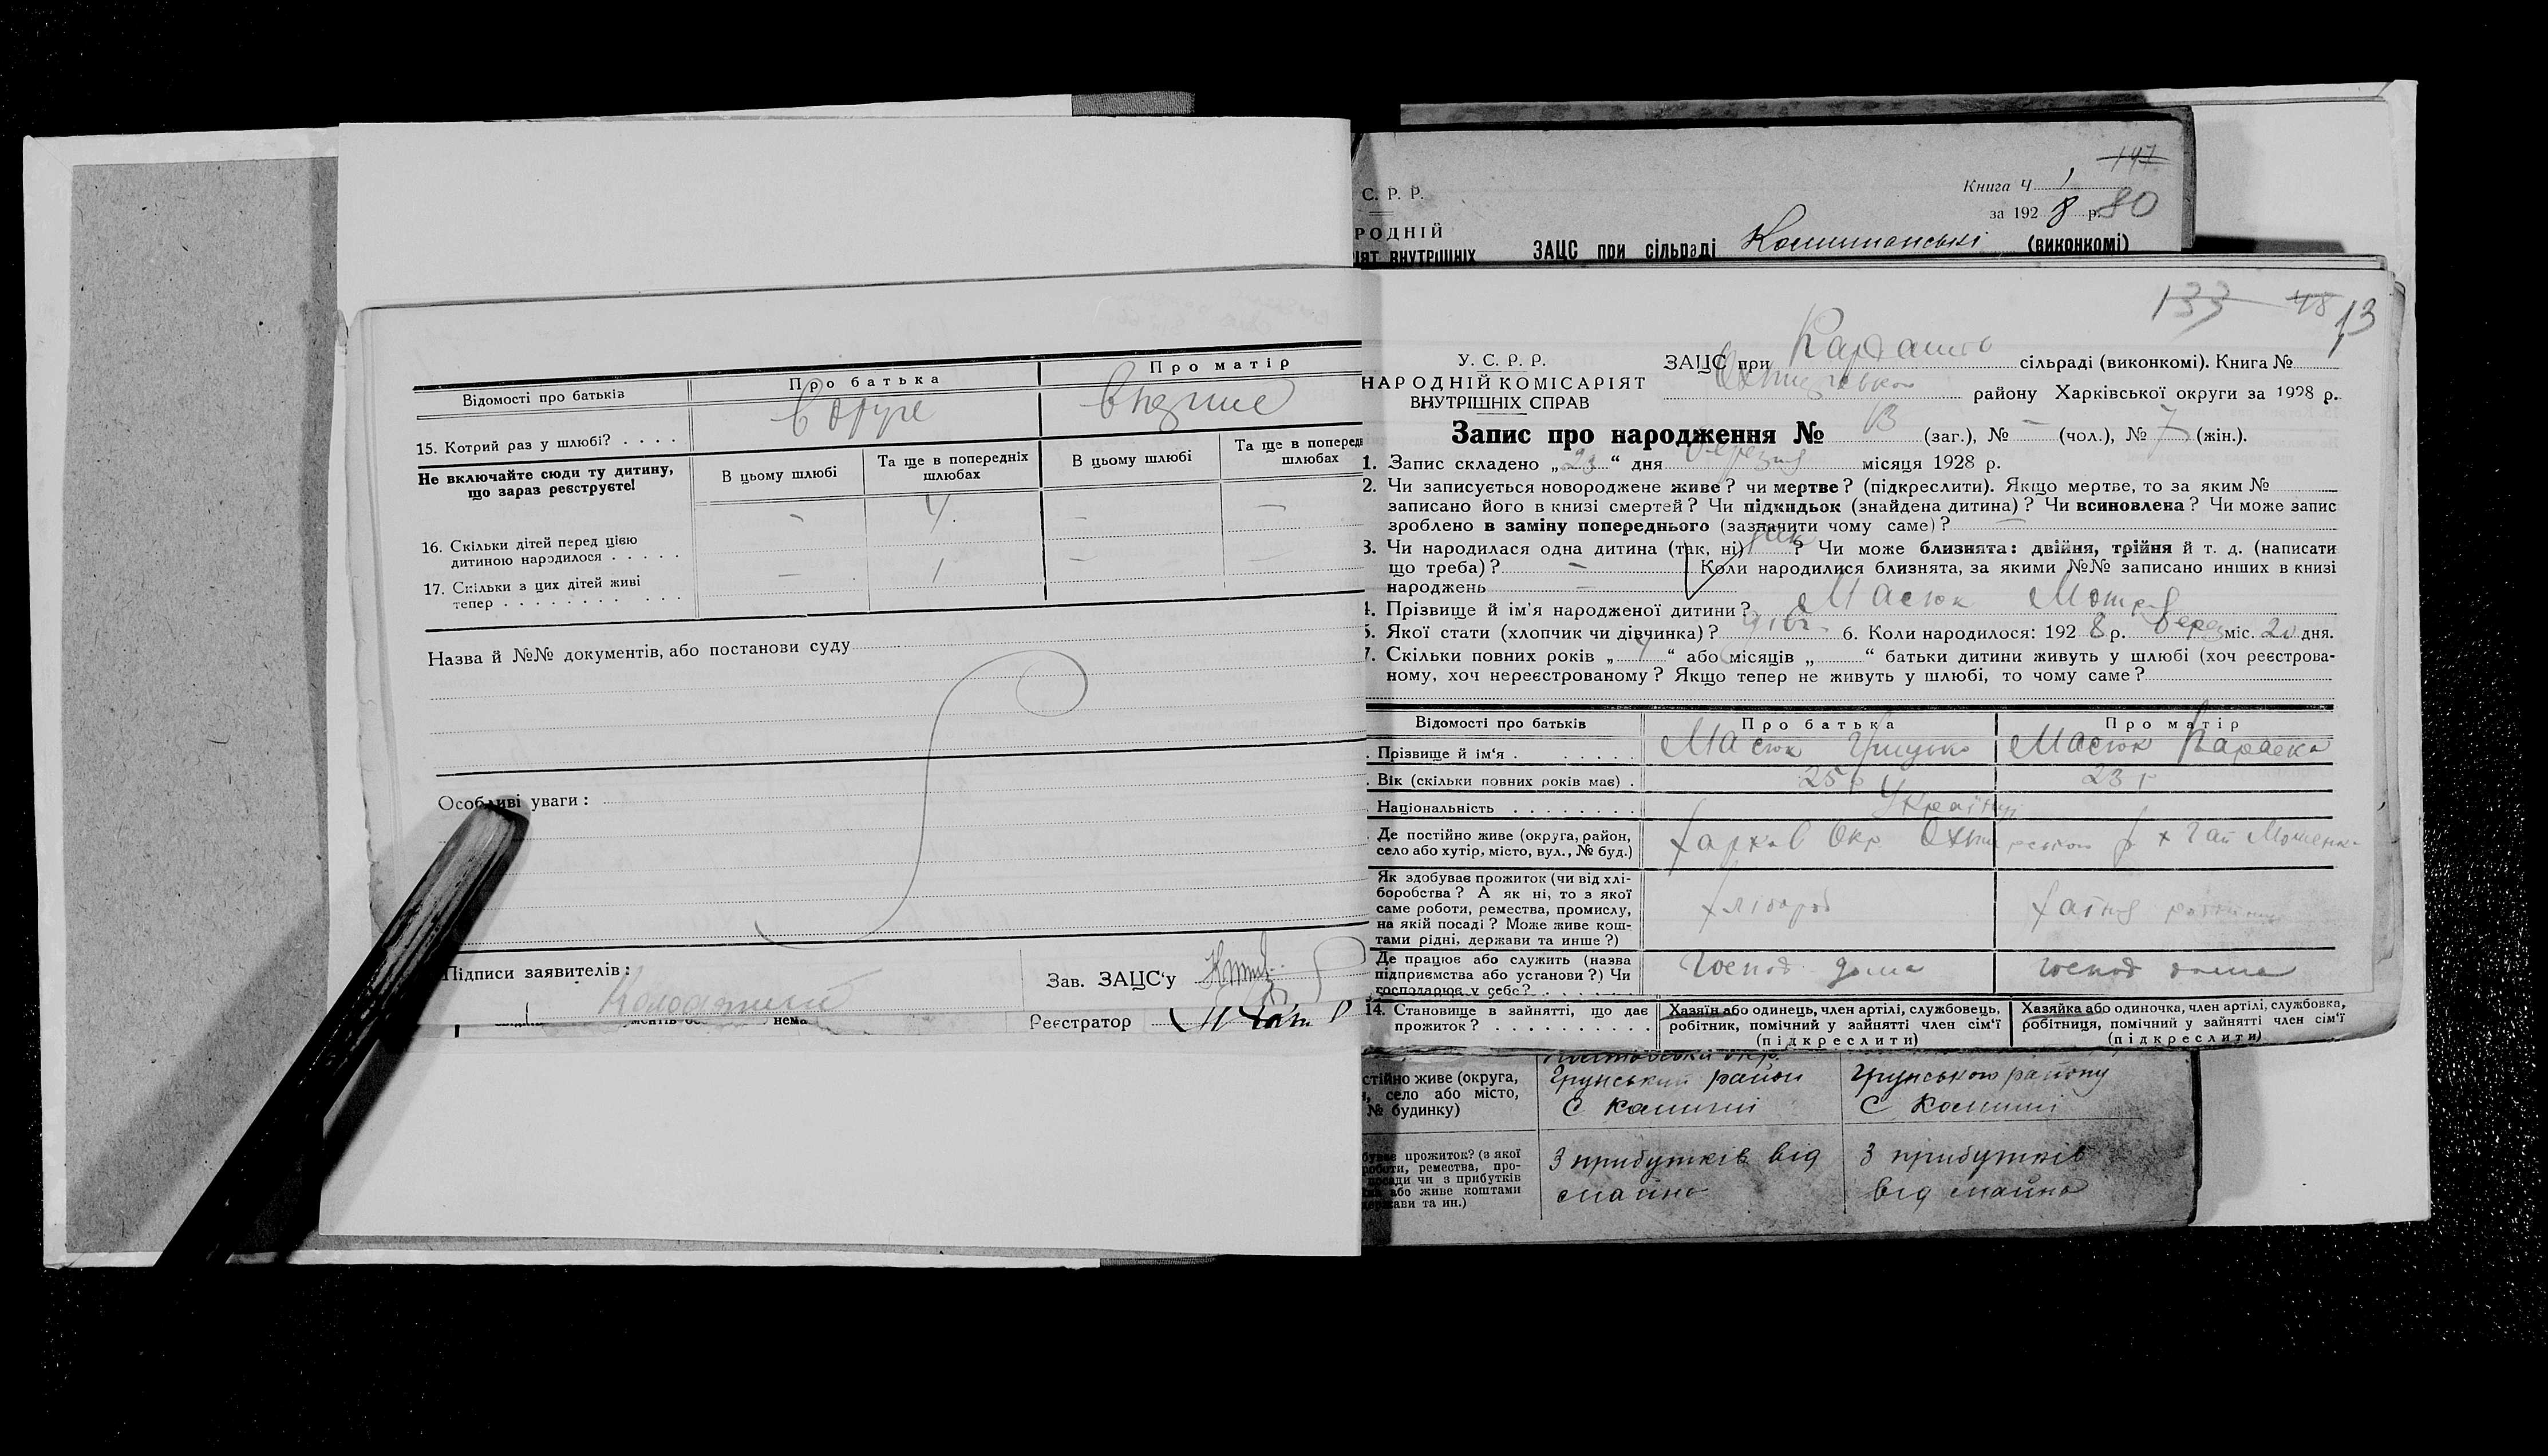 Відомості про батьків
Про батька
Про матір
15. Котрий раз у шлюбі? . . . .
вдруге
вперше
Не включайте сюди ту дитину,
що зараз реєструєте!
В цьому шлюбі
Та ще в попередніх
шлюбах
В цьому шлюбі
Та ще в поперед
шлюбах
16. Скільки дітей перед цією
дитиною народилося . . . . .
- 4 - -
17. Скільки з цих дітей живі
тепер . . . . . . . . . . .
- 1 - -
Назва й №№ документів, або постанови суду
Особливі уваги:
Підписи заявителів:
Зав. ЗАЦС'у
нема
Реєстратор
С. Р. Р.
РОДНІЙ
ІЯТ ВНУТРІШНІХ
147
Книга Ч 1
за 1928 р. 80
ЗАЦС при сільраді (виконкомі)
133 48 13
У. С. Р. Р.
НАРОДНІЙ КОМІСАРІЯТ
ВНУТРІШНІХ СПРАВ
ЗАЦС при сільраді (виконкомі). Книга №
району Харківської округи за 1928 р.
Запис про народження № 13 (заг.), № - (чол.), № 7 (жін.).
1. Запис складено „23“ дня березня місяця 1928 р.
2. Чи записується новороджене живе? чи мертве? (підкреслити). Якщо мертве, то за яким №
записано його в книзі смертей? Чи підкидьок (знайдена дитина)? Чи всиновлена? Чи може запис
зроблено в заміну попереднього (зазначити чому саме)? -
3. Чи народилася одна дитина (так, ні) так? Чи може близнята: двійня, трійня й т. д. (написати
що треба)? - Коли народилися близнята, за якими №№ записано инших в книзі
народжень -
4. Прізвище й ім'я народженої дитини? Масюк Мотря
5. Якої стати (хлопчик чи дівчинка)? дівч. 6. Коли народилося: 1928 р. берез міс. 20 дня.
7. Скільки повних років „4“ або місяців „ “ батьки дитини живуть у шлюбі (хоч реєстрова-
ному, хоч нереєстрованому? Якщо тепер не живуть у шлюбі, то чому саме?
Відомості про батьків
Про батька
Про матір
Прізвище й ім'я . . . . . .
Масюк Грицько
Масюк Параска
Вік (скільки повних років має) .
25 р
23 р
Національність . . . . . . . .
Де постійно живе (округа, район,
село або хутір, місто, вул., № буд.)
Харків Окр х Гай Мошенка
Як здобуває прожиток (чи від хлі-
боробства? А як ні, то з якої
саме роботи, ремества, промислу,
на якій посаді? Може живе кош-
тами рідні, держави та инше?)
хлібороб
Де працює або служить (назва
підприємства або установи?) Чи
господарює у себе? . . . . . .
Господ дома
господ дома
14. Становище в зайнятті, що дає
прожиток? . . . . . . . . . .
Хазяїн або одинець, член артілі, службовець,
робітник, помічний у зайнятті член сім'ї
(підкреслити)
Хазяйка або одиночка, член артілі, службовка,
робітниця, помічний у зайнятті член сім'ї
(підкреслити)
стійно живе (округа,
село або місто,
№ будинку)
Грунський район
Грунського району
буває прожиток? (з якої
роботи, ремества, про-
посади чи з прибутків
або живе коштами
держави та ин.)
З прибутків від
майна
З прибутків
від майна